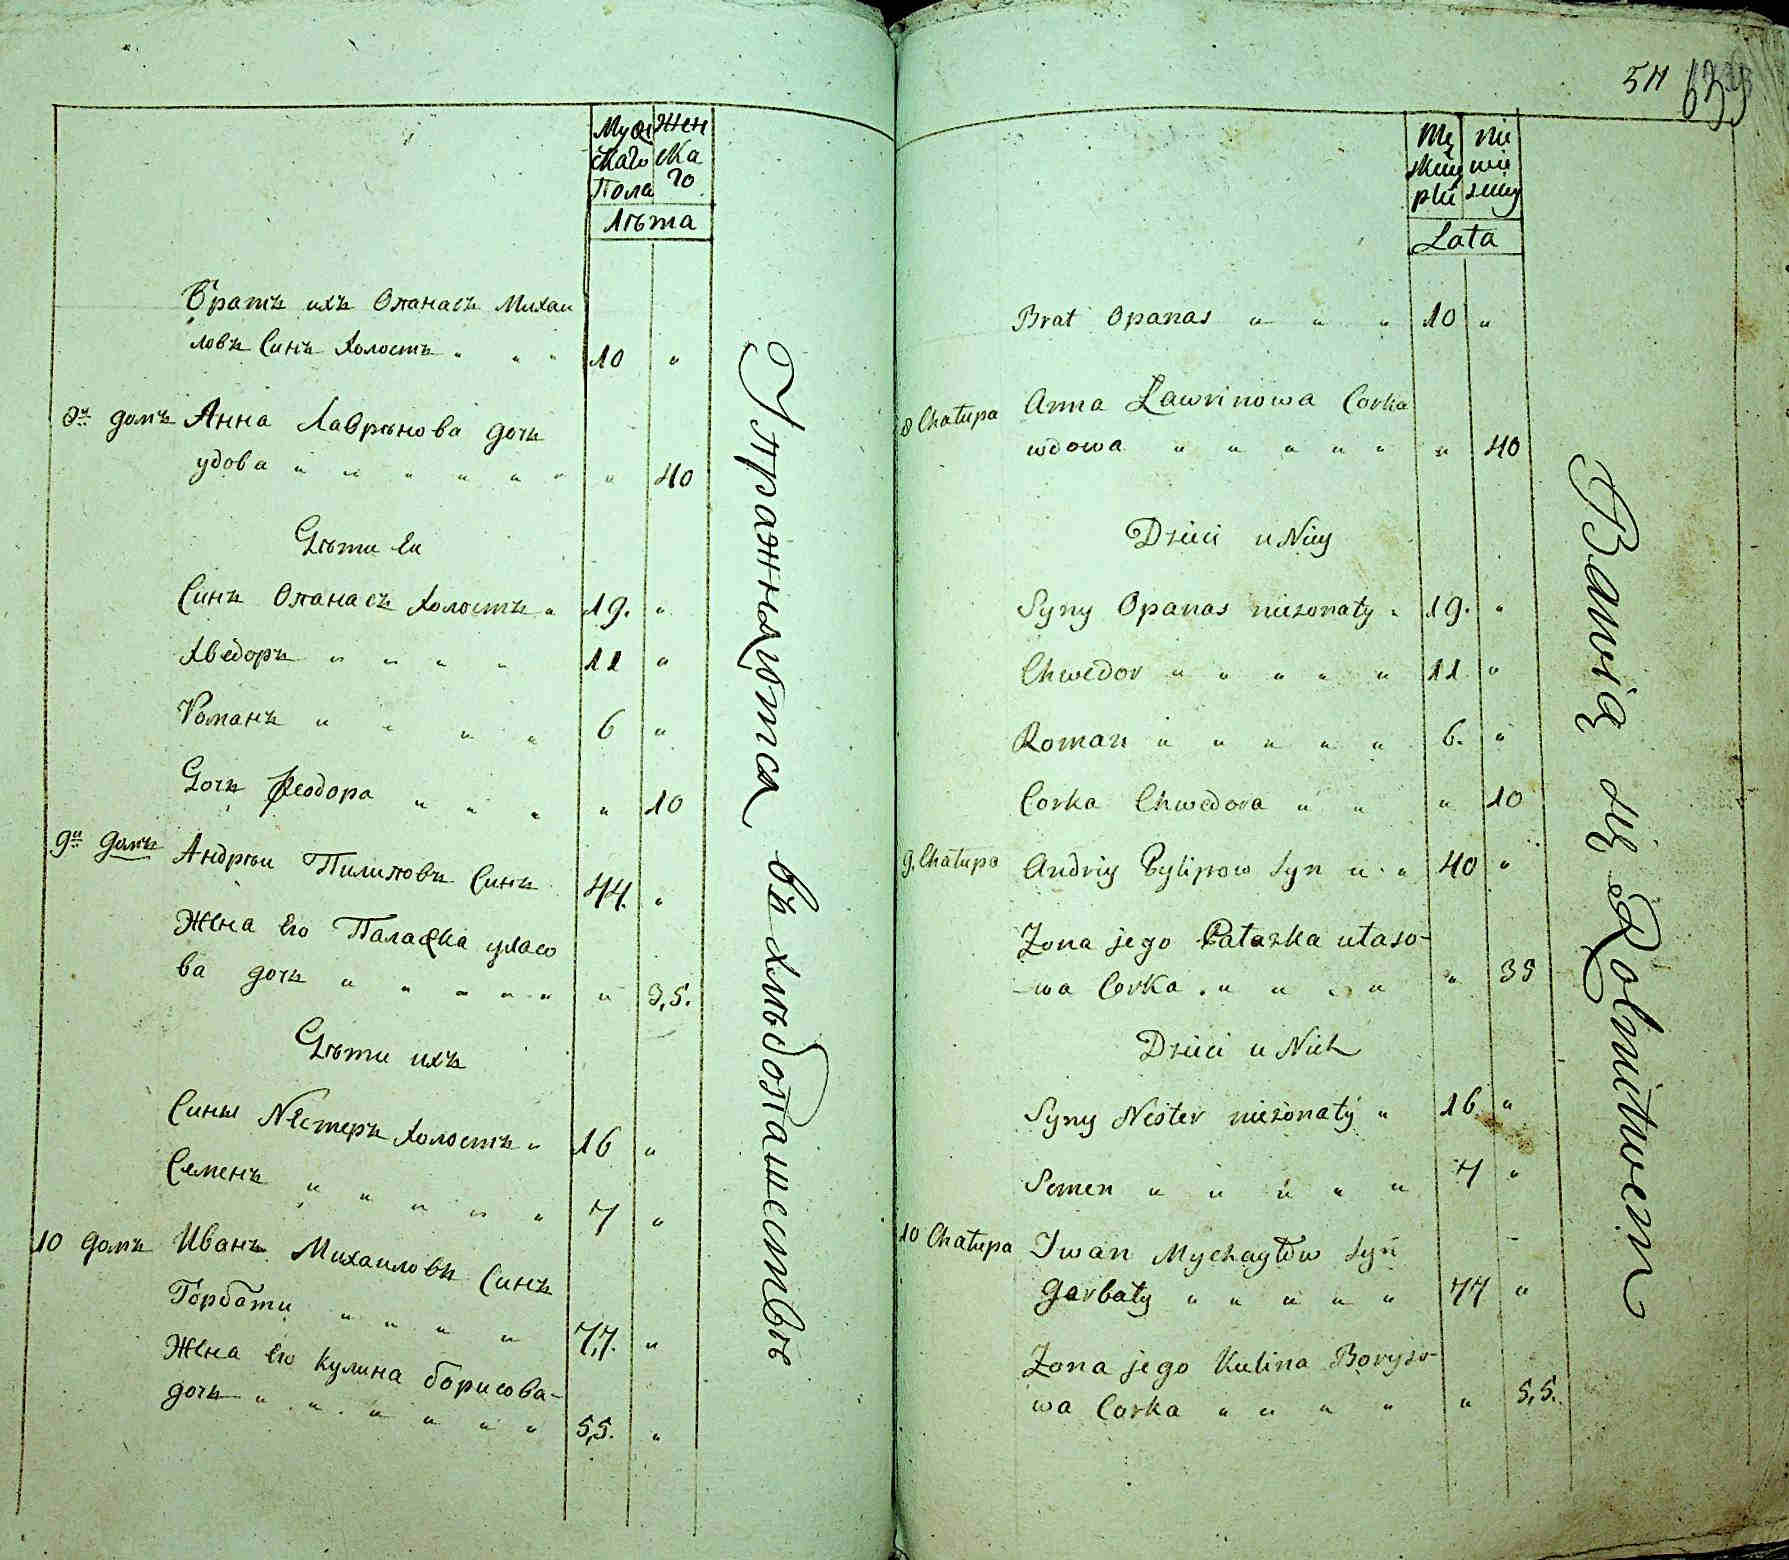 Муже Жен
скаго ска
Пола го
Лѣта
Братъ ихъ Опанасъ Михаи
ловъ Синъ Холостъ " " " 10 "
8й домъ Анна Лаврѣнова дочь
удова " " " " " " " 40
Дѣти Еи
Синъ Опанасъ Холостъ " 19. "
Хведоръ " " " " 11 "
Романъ " " " " 6 "
Дочь Феодора " " " " 10
9й домъ Андрѣи Пилиповъ Синъ 44. "
Жена Его Палажка уласо
ва дочь " " " " " " 3,5.
Дѣти ихъ
Сины Нестеръ Холостъ " 16 "
Семенъ " " " " " 7 "
10 домъ Иванъ Михаиловъ Синъ
Горбати " " " " 7,7. "
Жена Его Кулина борисова-
дочь " " " " " " 5,5. "
Упражняются въ хлѣбопашествѣ
54 639
Mę nie
skiey wie
płci sciey
Lata
Brat Opanas " " " 10 "
8 Chałupa Anna Lawrinowa Corka
wdowa " " " " " " 40
Dzieci u Niey
Syny Opanas niezonaty " 19. "
Chwedor " " " " " 11. "
Roman " " " " " 6. "
Corka Chwedora " " " 10
9. Chałupa Andriy Pylipow Syn " " 40 "
Zona jego Pałazka ułaso-
-wa Corka . " " " " " 35
Dzieci u Nich
Syny Nester niezonaty " 16 "
Semen " " " " " 7 "
10 Chałupa Iwan Mychayłow Syn
Garbaty " " " " " 77 "
Zona jego Kulina Boryso-
wa Corka " " " " " 5,5.
Bawią się Rolnictwem